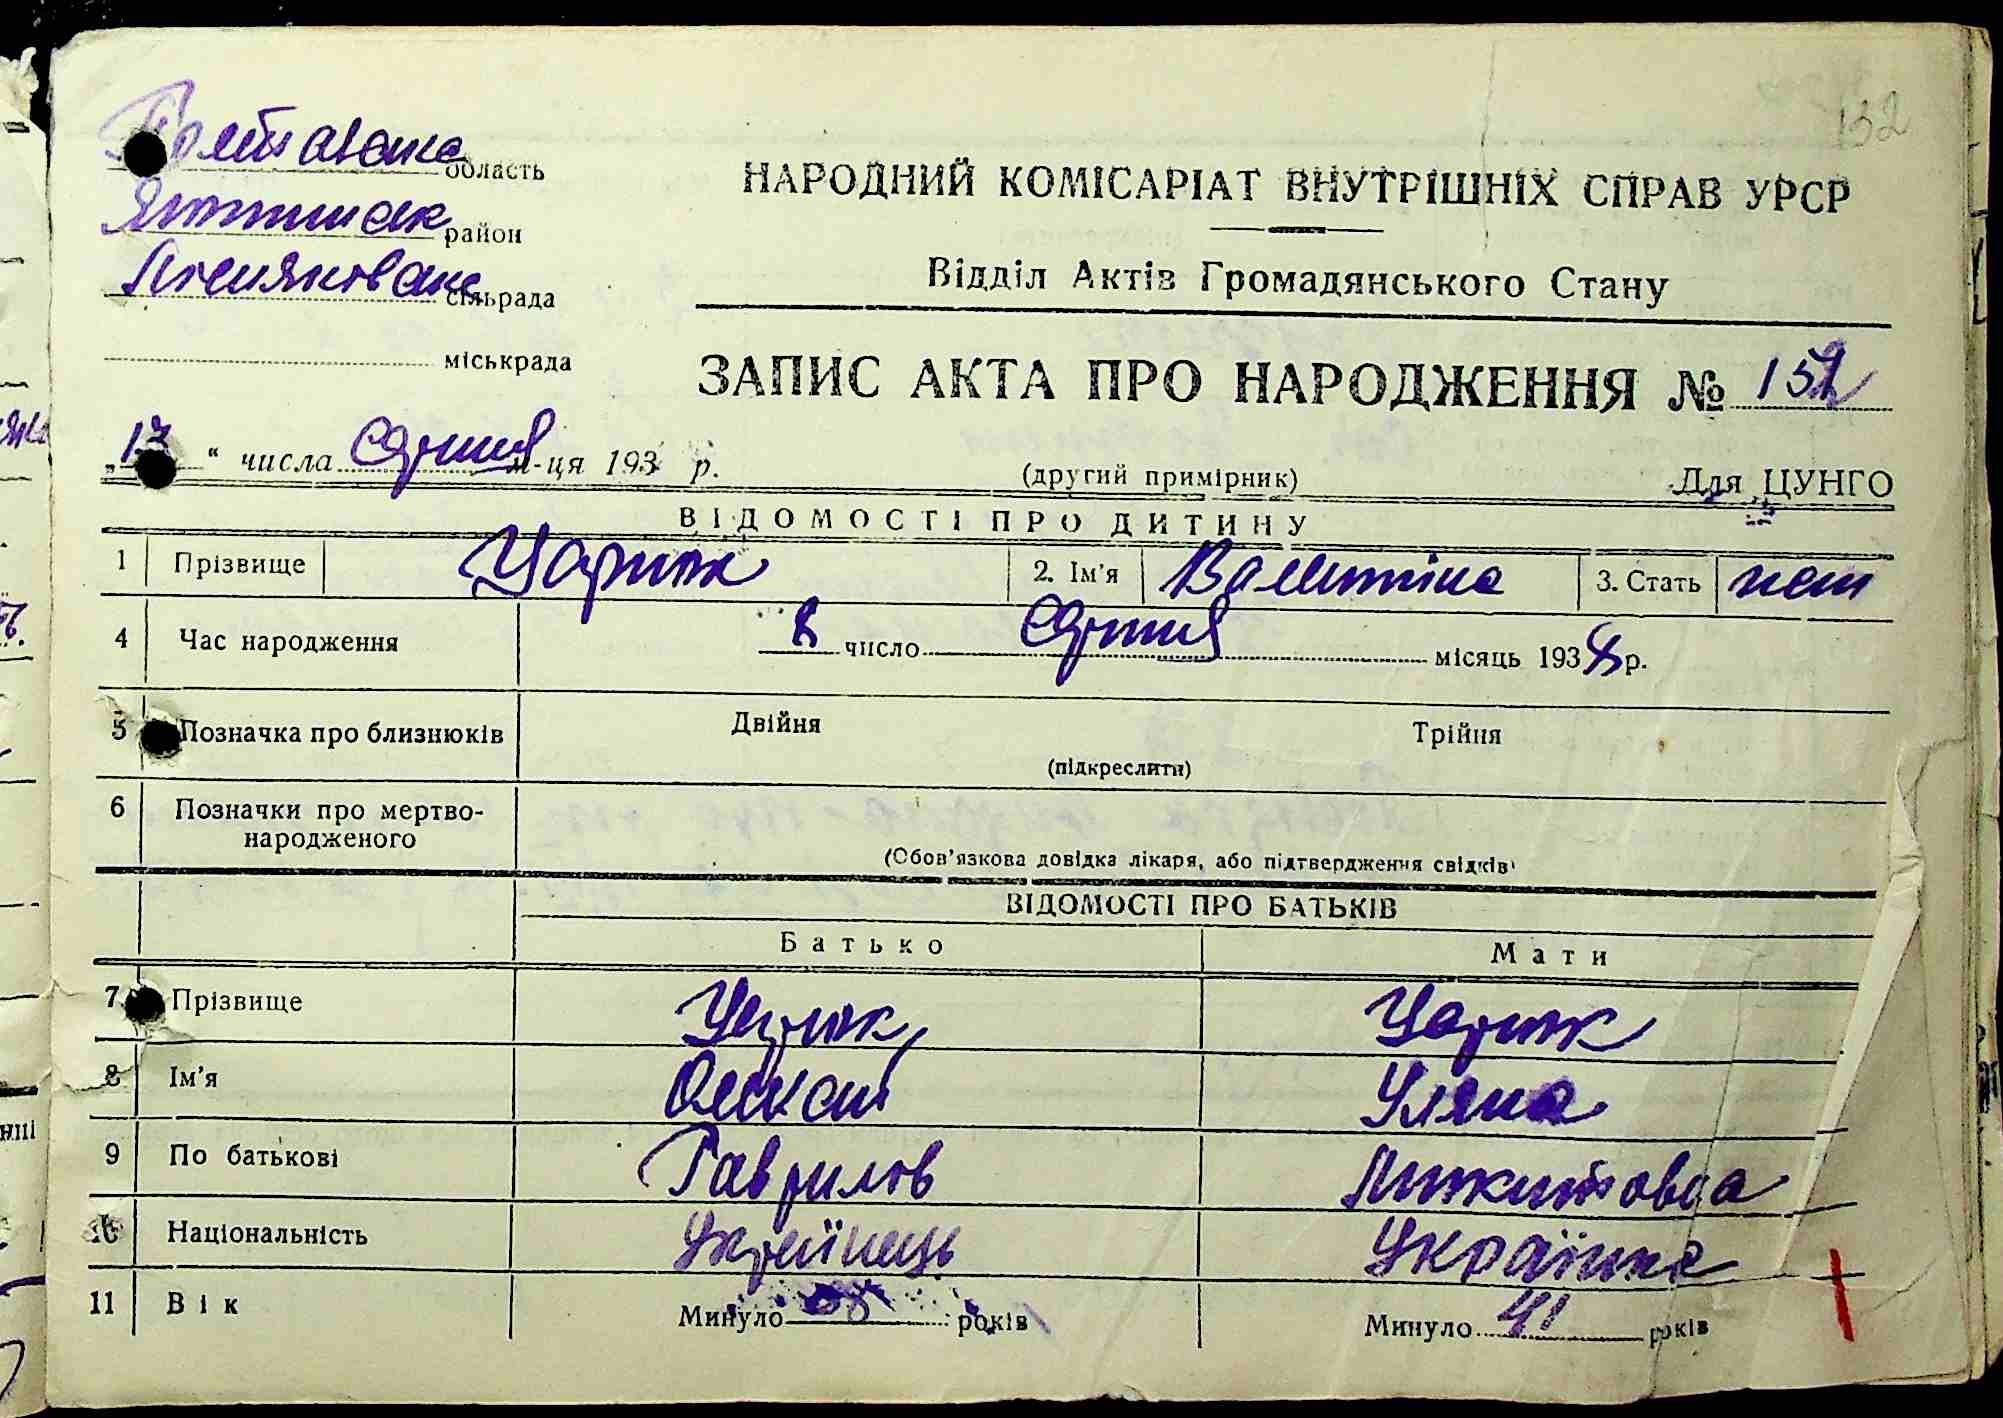 132
Полтавська область
НАРОДНИЙ КОМІСАРІАТ ВНУТРІШНІХ СПРАВ УРСР
район
Відділ Актів Громадянського Стану
сільрада
міськрада
ЗАПИС АКТА ПРО НАРОДЖЕННЯ № 152
„17“ числа Серпня м-ця 193 р.
(другий примірник)
Для ЦУНГО
ВІДОМОСТІ ПРО ДИТИНУ
1 Прізвище Царик 2. Ім'я Валентіна 3. Стать жен
4 Час народження 8 число Серпня місяць 1938 р.
5 Позначка про близнюків Двійня Трійня
(підкреслити)
6 Позначки про мертво-
народженого
(Обов'язкова довідка лікаря, або підтвердження свідків)
ВІДОМОСТІ ПРО БАТЬКІВ
Батько Мати
7 Прізвище Царик Царик
8 Ім'я Олексій Уляна
9 По батькові Гаврилов
10 Національність Українець Українка
11 Вік Минуло років Минуло 41 років